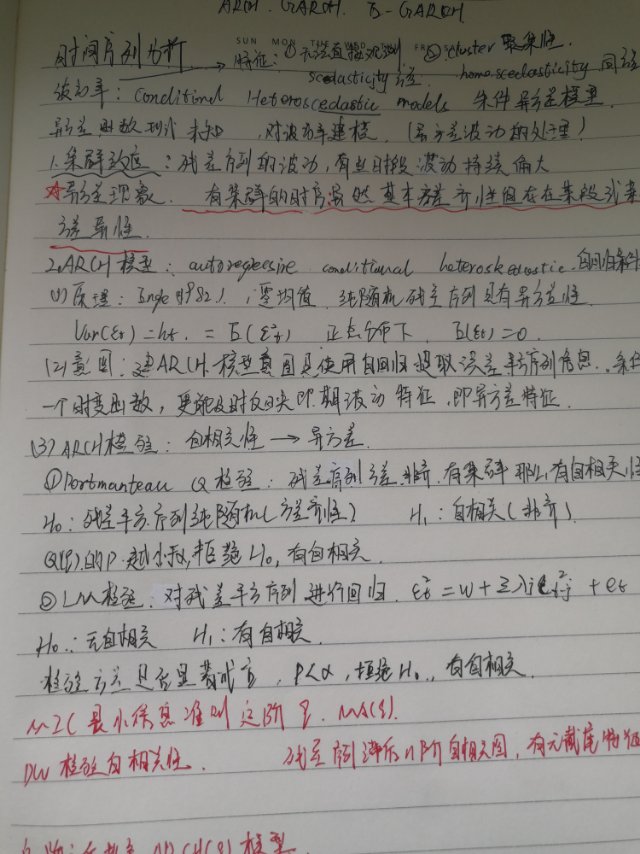 ARCH. GARCH. E-GARCH
时间序列分析 → 特征: ①无法直接观测 ②cluster 聚集性.
SUN MON
scedasticity 方差. homoscedasticity 同方差
波动率: Conditional Heteroscedastic models 条件异方差模型
异方差函数形式未知, 对波动率建模. (异方差波动的处理)
1.集群效应: 残差序列的波动, 有些时段波动持续偏大
☆异方差现象. 有集群的时序虽然基本方差齐性但存在某段残差
方差异性.
2.ARCH模型: autoregressive conditional heteroskedastic. 自回归条件
(1)原理: Engle(1982), 零均值 纯随机残差序列具有异方差性.
Var(εt)=ht = E(εt²) 正态分布下 E(εt)=0.
(2)意图: ARCH模型意图是使用自回归提取误差平方序列信息. 条件
一个时变函数, 更能及时反映即期波动特征, 即异方差特征.
(3)ARCH检验: 自相关性 → 异方差.
①Portmanteau Q检验: 残差序列方差非齐, 有集群那么有自相关性
H₀: 残差平方序列纯随机(方差齐性) H₁: 自相关(非齐).
的P越小, 拒绝H₀, 有自相关.
②LM检验: 对残差平方序列进行回归. εt² = w + Σλjε²t-j + et
H₀: 无自相关 H₁: 有自相关.
检验方差是否显著, P<α, 拒绝H₀, 有自相关.
最小信息准则定阶
DW检验自相关性. 残差序列滞后n阶自相关图, 有无截尾特征
ARCH(q)模型.